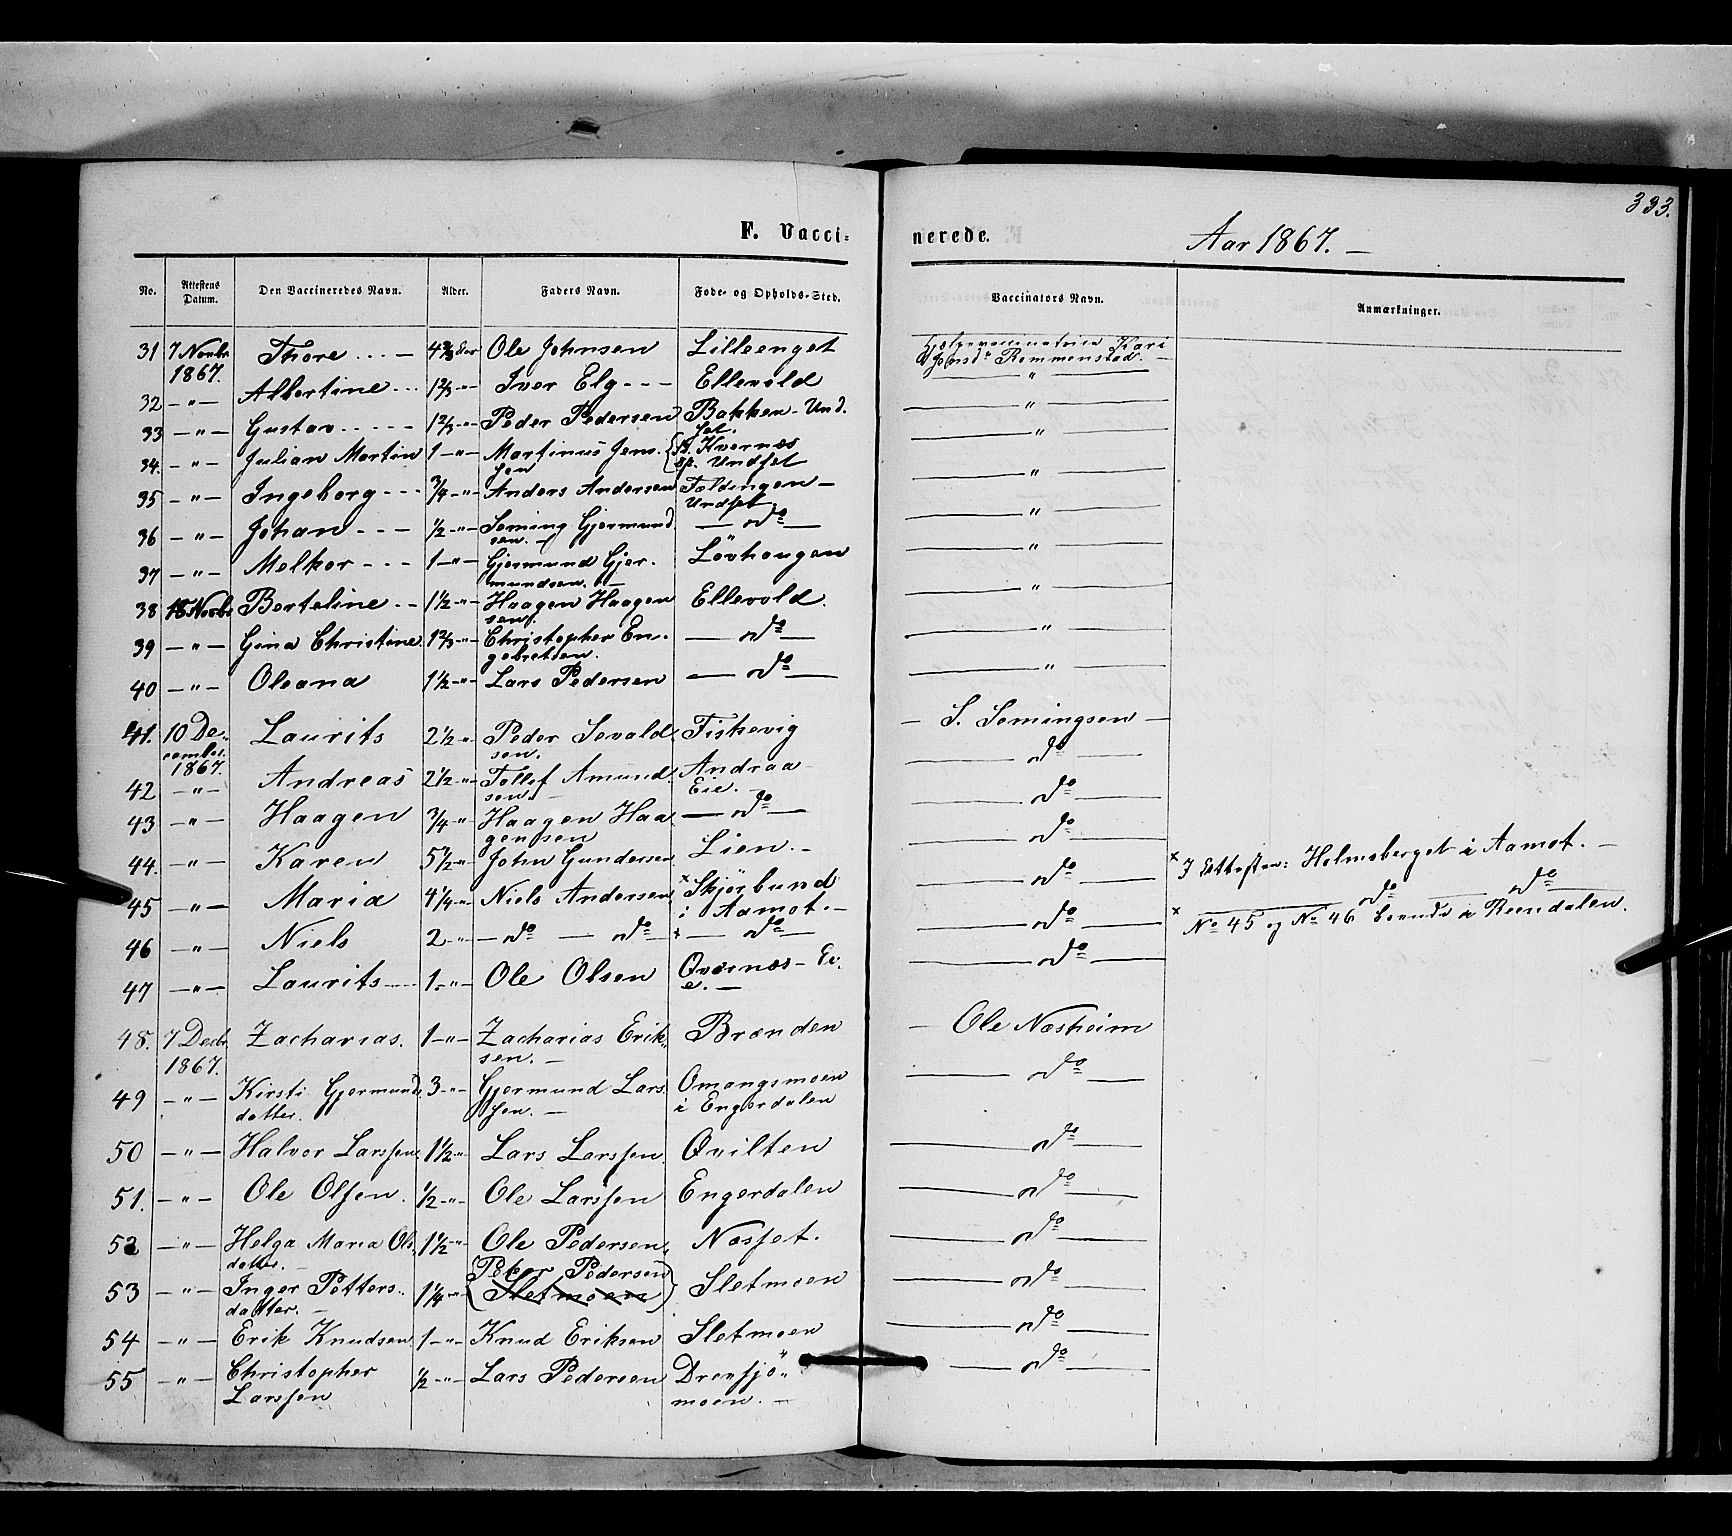 333.
F. Vacci- nerede. Aar 1867. —
No. Attestens Datum. Den Vaccineredes Navn. Alder. Faders Navn. Føde- og Opholds-Sted. Vaccinators Navn. Anmærkninger.
31 7 Novbr 1867. Thore 4 2/3 Ole Johnsen Lilleenget Hjelpevaccinatrice Kari Jensdr Rommenstad. —
32 — " — Albertine 1 2/3 — " Iver Elg Ellevold — " —
33 — " — Gustav 1 2/3 — " Peder Pedersen Bakken - Undset. — " —
34. — " — Julian Martin 1 — " — Martinus Jenssen Kvernæs Undset — " —
35 — " — Ingeborg 3/4 — " — Anders Andersen Foldingen — Undset — " —
36 — " — Johan 1/2 — " — Seming Gjermundsen. — — do — — " —
37 — " — Melkor 1 — " — Gjermund Gjermundsen. — Lövhougen — " —
38 18 Novbr Berteline 1 1/2 — " Haagen Haagensen. Ellevold. — " —
39 — " — Gina Christine 1 2/3 — " Christopher Engebretsen. — do — — " —
40 — " — Oleana 1 1/2 — " Lars Pedersen — do — — " —
41. 10 December 1867. Laurits 2 1/2 " Peder Sevaldsen. Fiskevig — S. Semingsen —
42 — " — Andreas 2 1/2 — " Tollef Amundsen. — Andraa Eie. — — do —
43 — " — Haagen 3/4 — " Haagen Haagensen — do — — do —
44. — " — Karen 5 1/2 — " John Gundersen Lien. — — do —
45 — " — Maria 4 1/4 — " Niels Andersen x Skjørbund i Aamot. — — do — x I Attesten: Holmsberget i Aamot. —
46 — " — Niels 2 — " — do — do — x — do — — do — x — do — do —
No 45 og No 46 boende i Rendalen.
47 — " — Laurits 1. — " — Ole Olsen Qvernæs - Eie. — — do —
48. 7 Decbr 1867. Zacharias. 1 — " — Zacharias Eriksen. — Brænden — Ole Næsheim
49 — " — Kirsti Gjermundsdatter. 3 — " Gjermund Larssen. — Omangsmoen i Engerdalen — do —
50 — " — Halvor Larssen 1 1/2 " Lars Larssen. Qvilten — do —
51. — " — Ole Olssen. 1/2 — " — Ole Larssen Engerdalen — do —
52 — " — Helga Maria Olsdatter. — 1 1/2 — " Ole Pedersen. Næsset. — do —
53 — " — Inger Pettersdatter. — 1 1/4 — " Peter Pedersen (Sletmoen) Sletmoen — do —
54 — " — Erik Knudsen 1 — " — Knud Eriksen Sletmoen — do —
55 — " — Christopher Larssen 1/2 — " — Lars Pedersen Drevsjömoen. — — do —